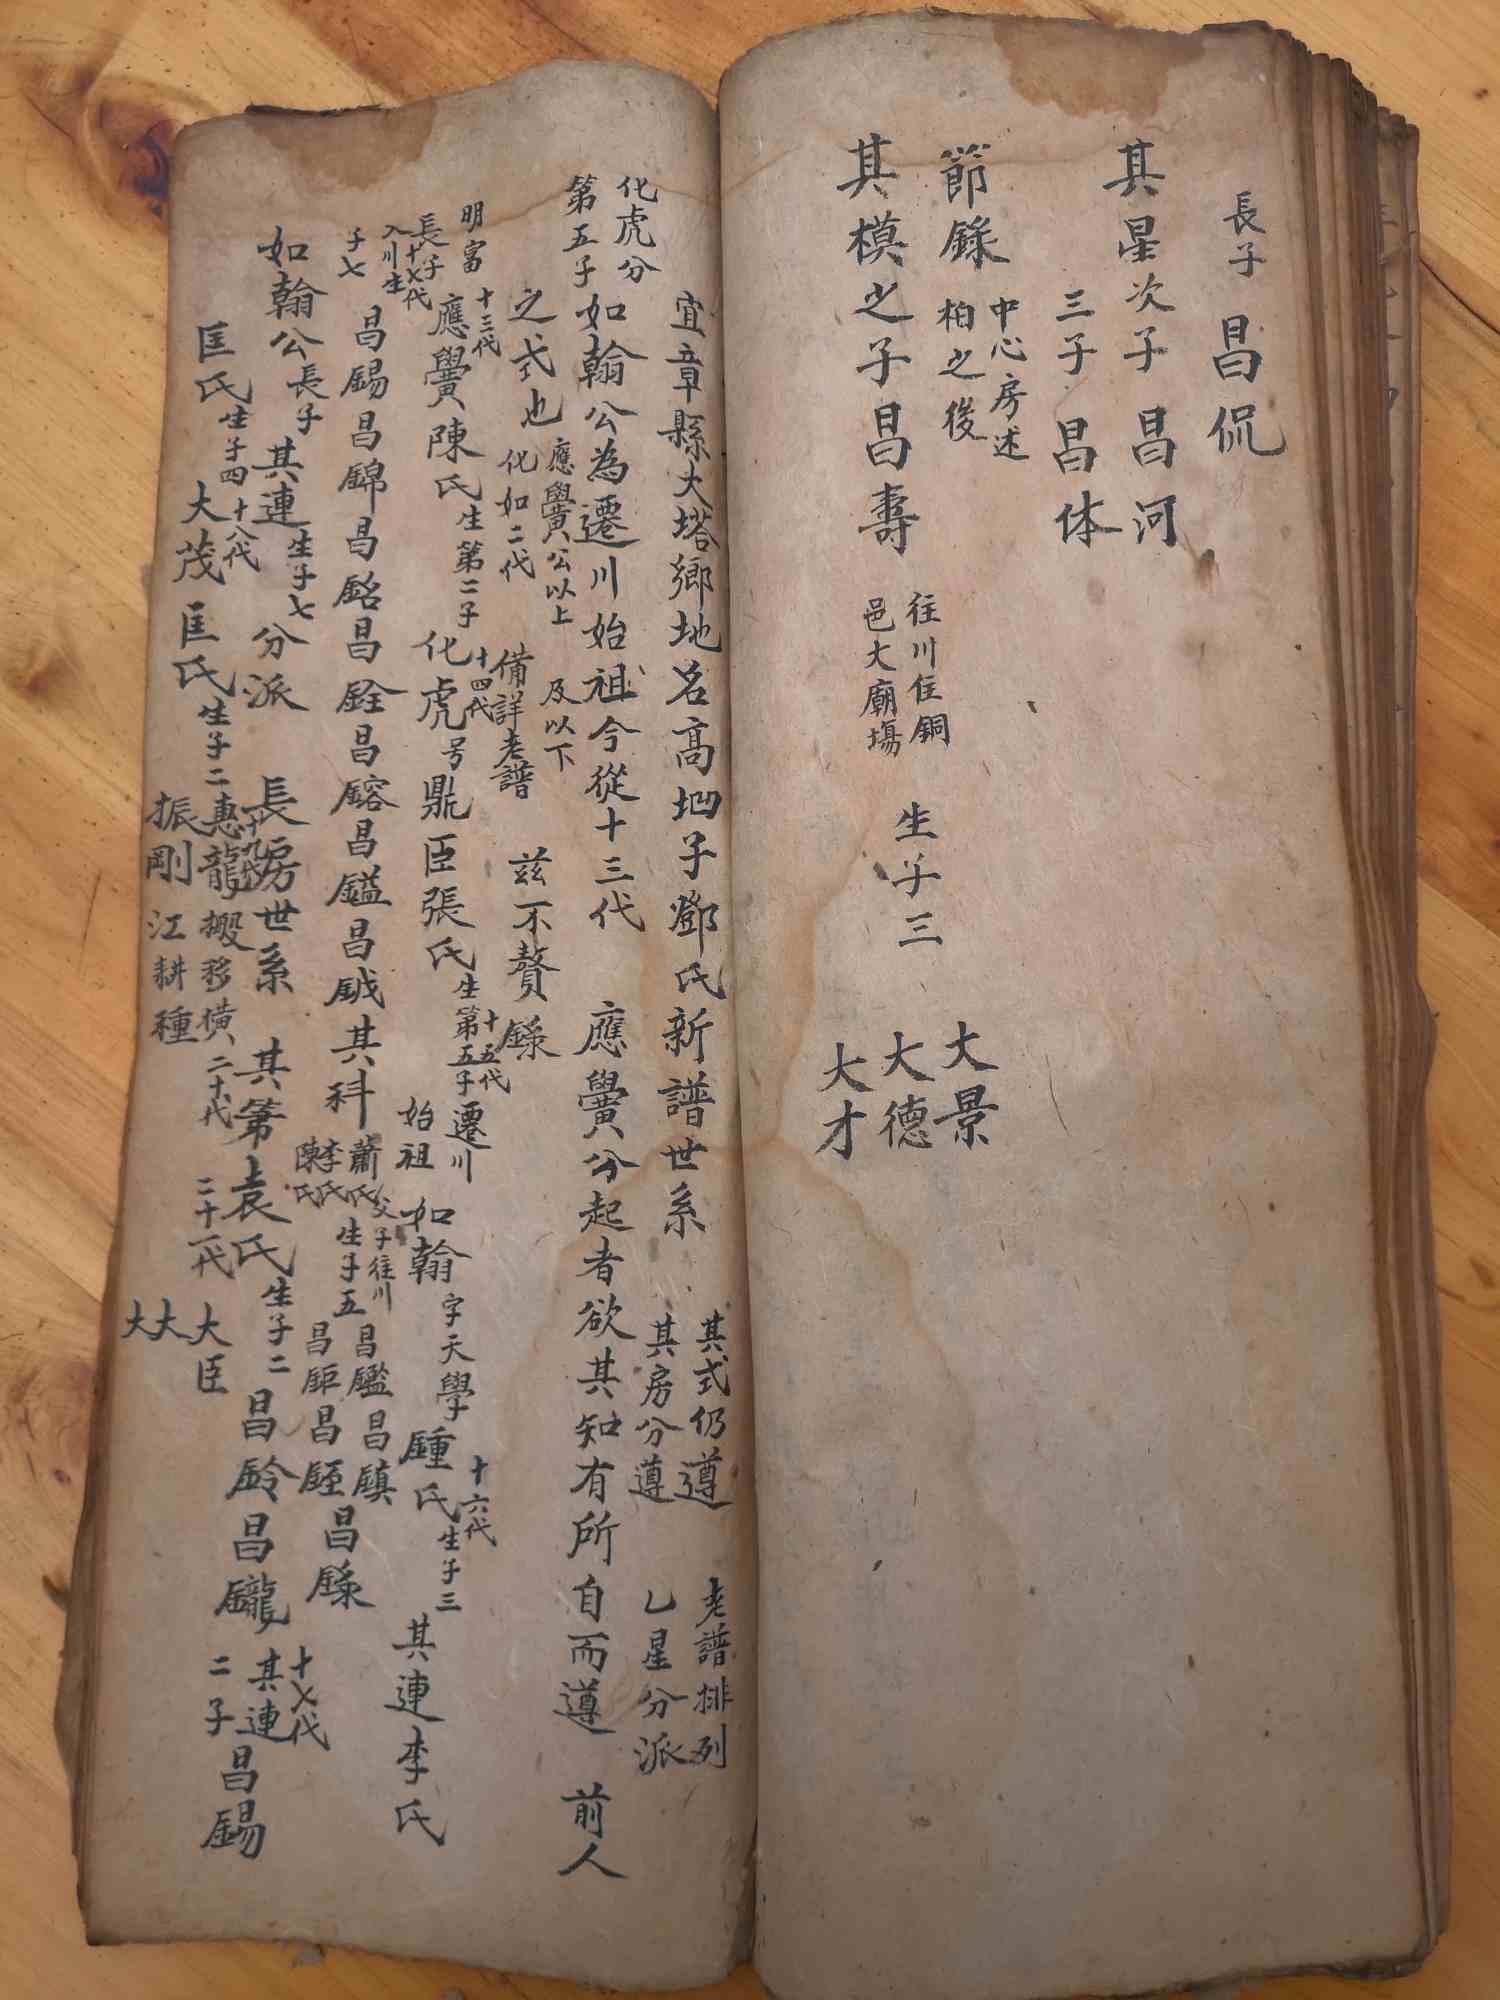 長子 昌侃
其星次子 昌河
三子 昌体
節錄 中心房述
柏之後
其模之子昌壽 往川住銅
邑大廟場 生子三 大景
大德
大才
宜章縣大塔鄉地名高坵子鄧氏新譜世系 其式仍遵 老譜排列
其房分遵 乚星分派
化虎分
第五子 如翰公為遷川始祖今從十三代 應黌分起者欲其知有所自而遵 前人
之式也 應黌公以上 及以下
化如二代 備詳老譜 茲不贅錄
明富 十三代
長子 應黌陳氏生第二子 十四代 化虎号鼎臣張氏生第五子 十五代 遷川
始祖 如翰 字天學 鍾氏生子三 十六代 其連李氏
十七代
入川生
子七 昌錫昌錦昌銘昌銓昌鎔昌鎰昌鉞其科 蕭氏
李氏
陳氏 父子往川
生子五 昌鑑昌鎮
昌鉅昌鋞昌錄
如翰公長子 其連生子七 分派 長房世系 其第袁氏生子二昌鈴昌鑨 十七代
其連
二子 昌錫
匡氏生子四 十八代 大茂匡氏生子二 十九代 惠龍搬移橫 二十代 二十一代 大臣
振剛 江耕種 大
大